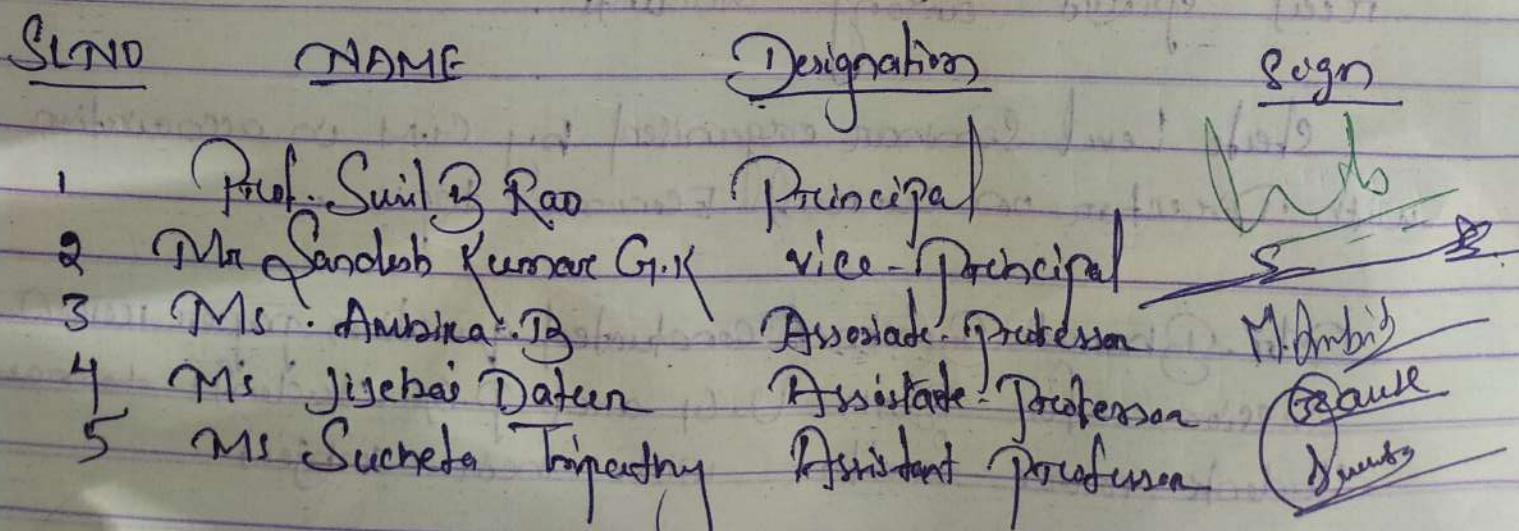 SLNO NAME Designation Sign
1 Prof. Sunil B Rao Principal
2 Mr Sandesh Kumar G.K vice-Principal
3 Ms. Ambika.B Associate-Professor M.Ambis
4 Ms Jijebai Dateer Assistate-Professor
5 Ms Sucheta Tripathy Assistant Professor